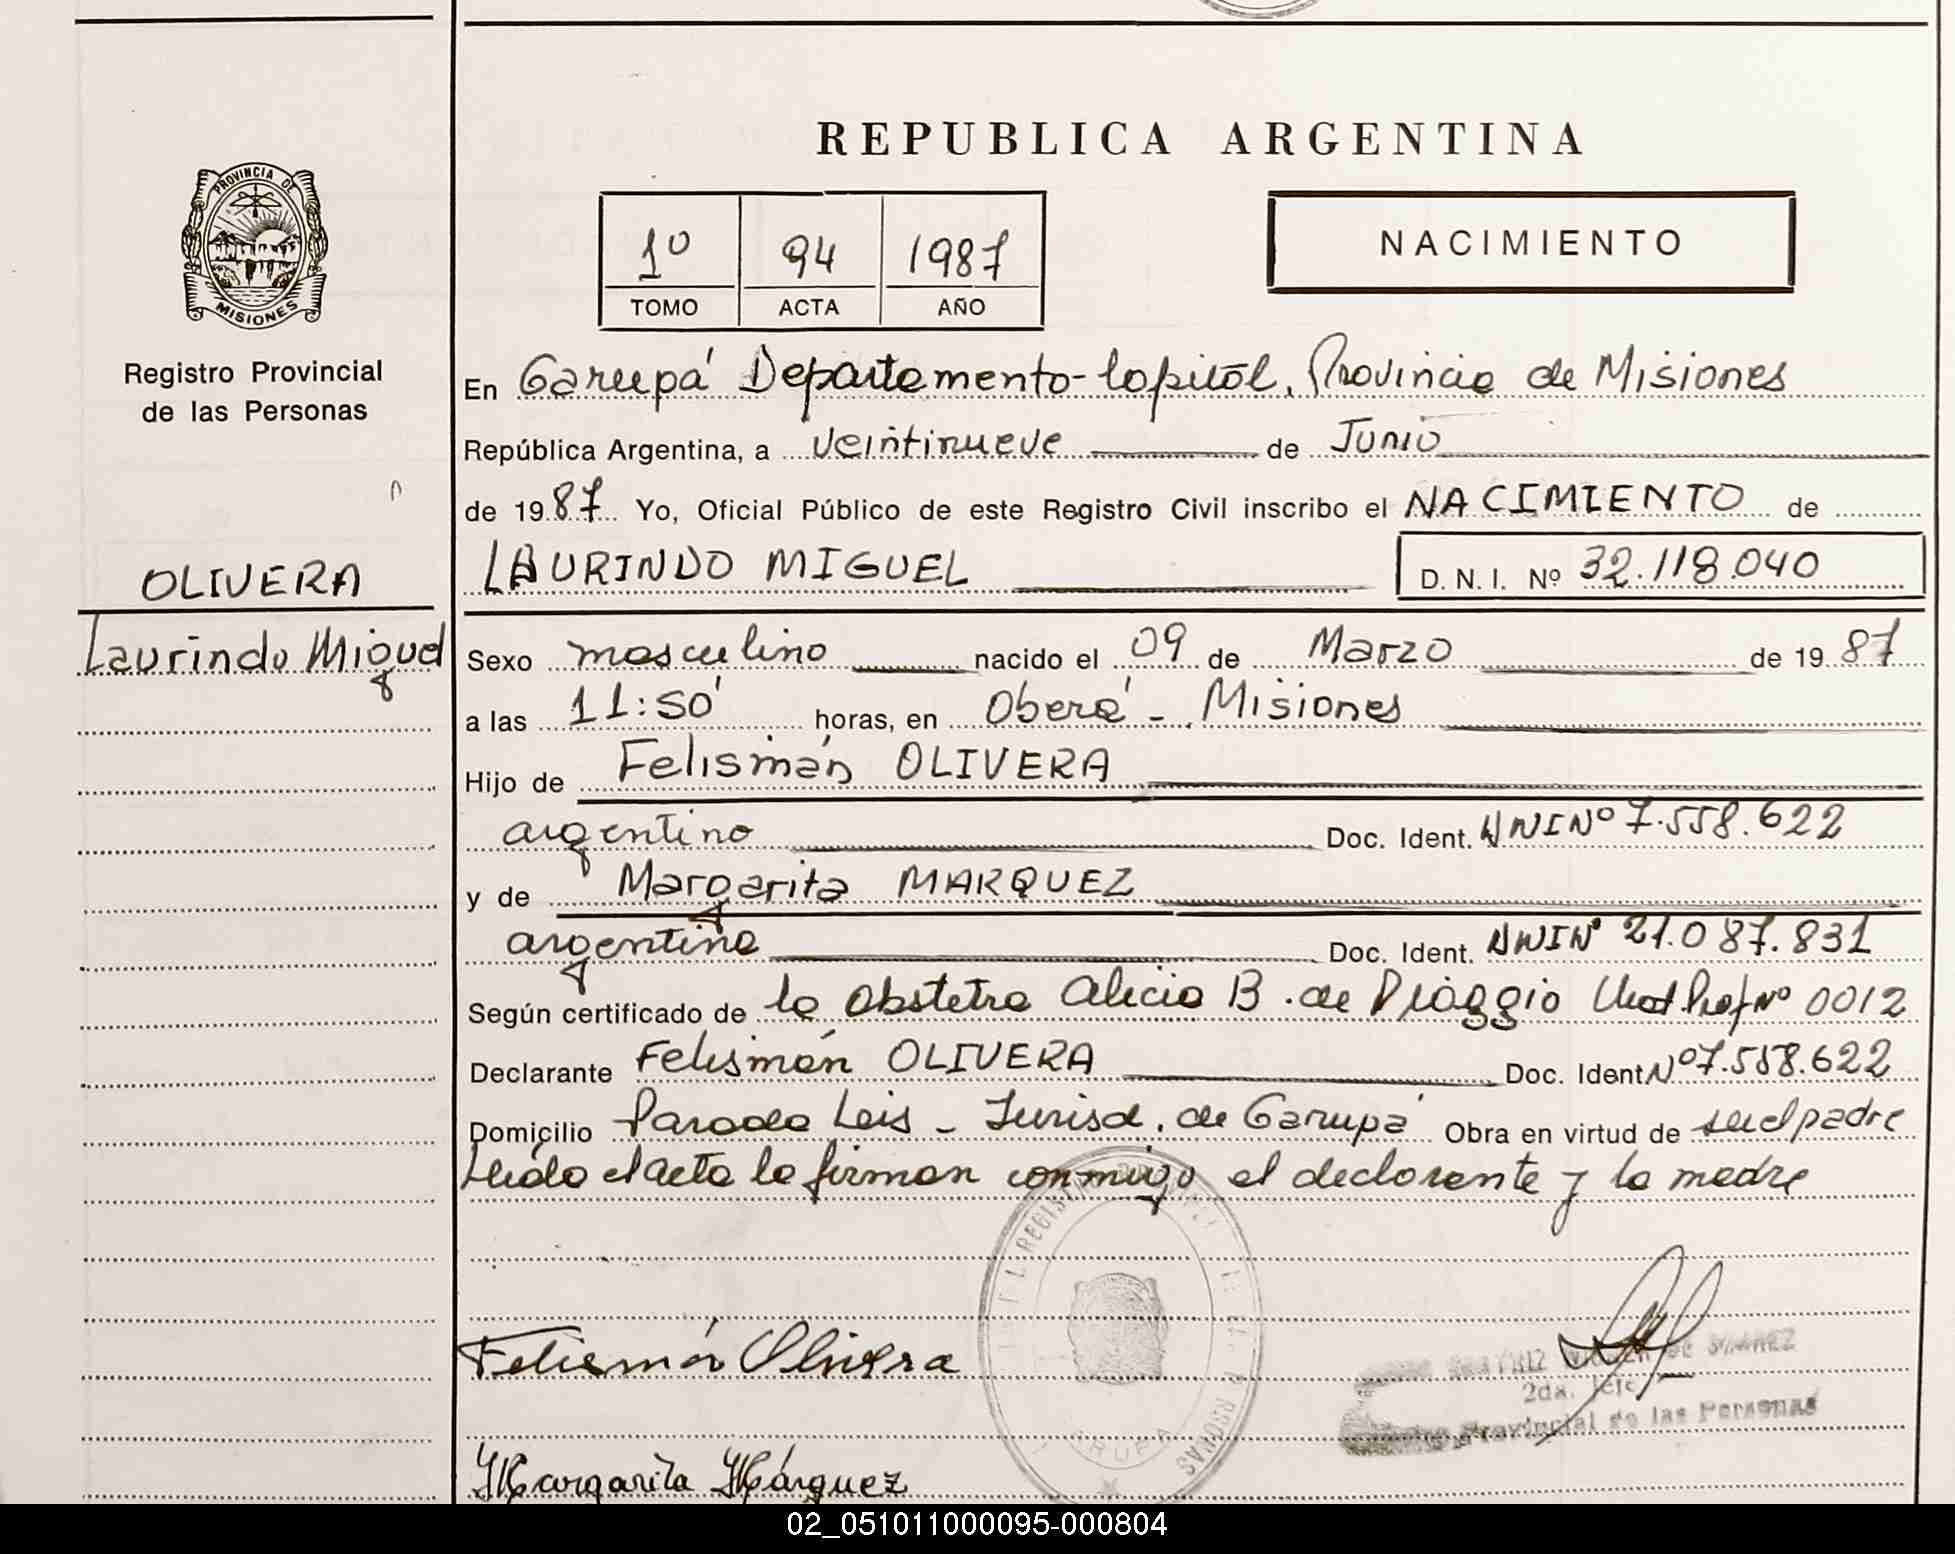 REPUBLICA ARGENTINA
PROVINCIA DE
MISIONES
1º 94 1987
TOMO ACTA AÑO
NACIMIENTO
Registro Provincial
de las Personas
OLIVERA
Laurindo Miguel
En Garupá Departamento Capital, Provincia de Misiones
República Argentina, a veintinueve de Junio
de 1987 Yo, Oficial Público de este Registro Civil inscribo el NACIMIENTO de
LAURINDO MIGUEL D. N. I. Nº 32.118.040
Sexo masculino nacido el 09 de Marzo de 1987
a las 11:50 horas, en Oberá - Misiones
Hijo de Felismán OLIVERA
argentino Doc. Ident. DNI Nº 7.558.622
y de Margarita MARQUEZ
argentina Doc. Ident. DNI Nº 21.087.831
Según certificado de la obstetra Alicia B. de Piaggio Mat. Prof Nº 0012
Declarante Felismán OLIVERA Doc. Ident Nº 7.558.622
Domicilio Parada Leis - Jurisd. de Garupá Obra en virtud de ser el padre
Leída el acta la firman conmigo el declarante y la madre
Felismán Olivera
2da. Jefe
Provincial de las Personas
Margarita Márquez
02_051011000095-000804